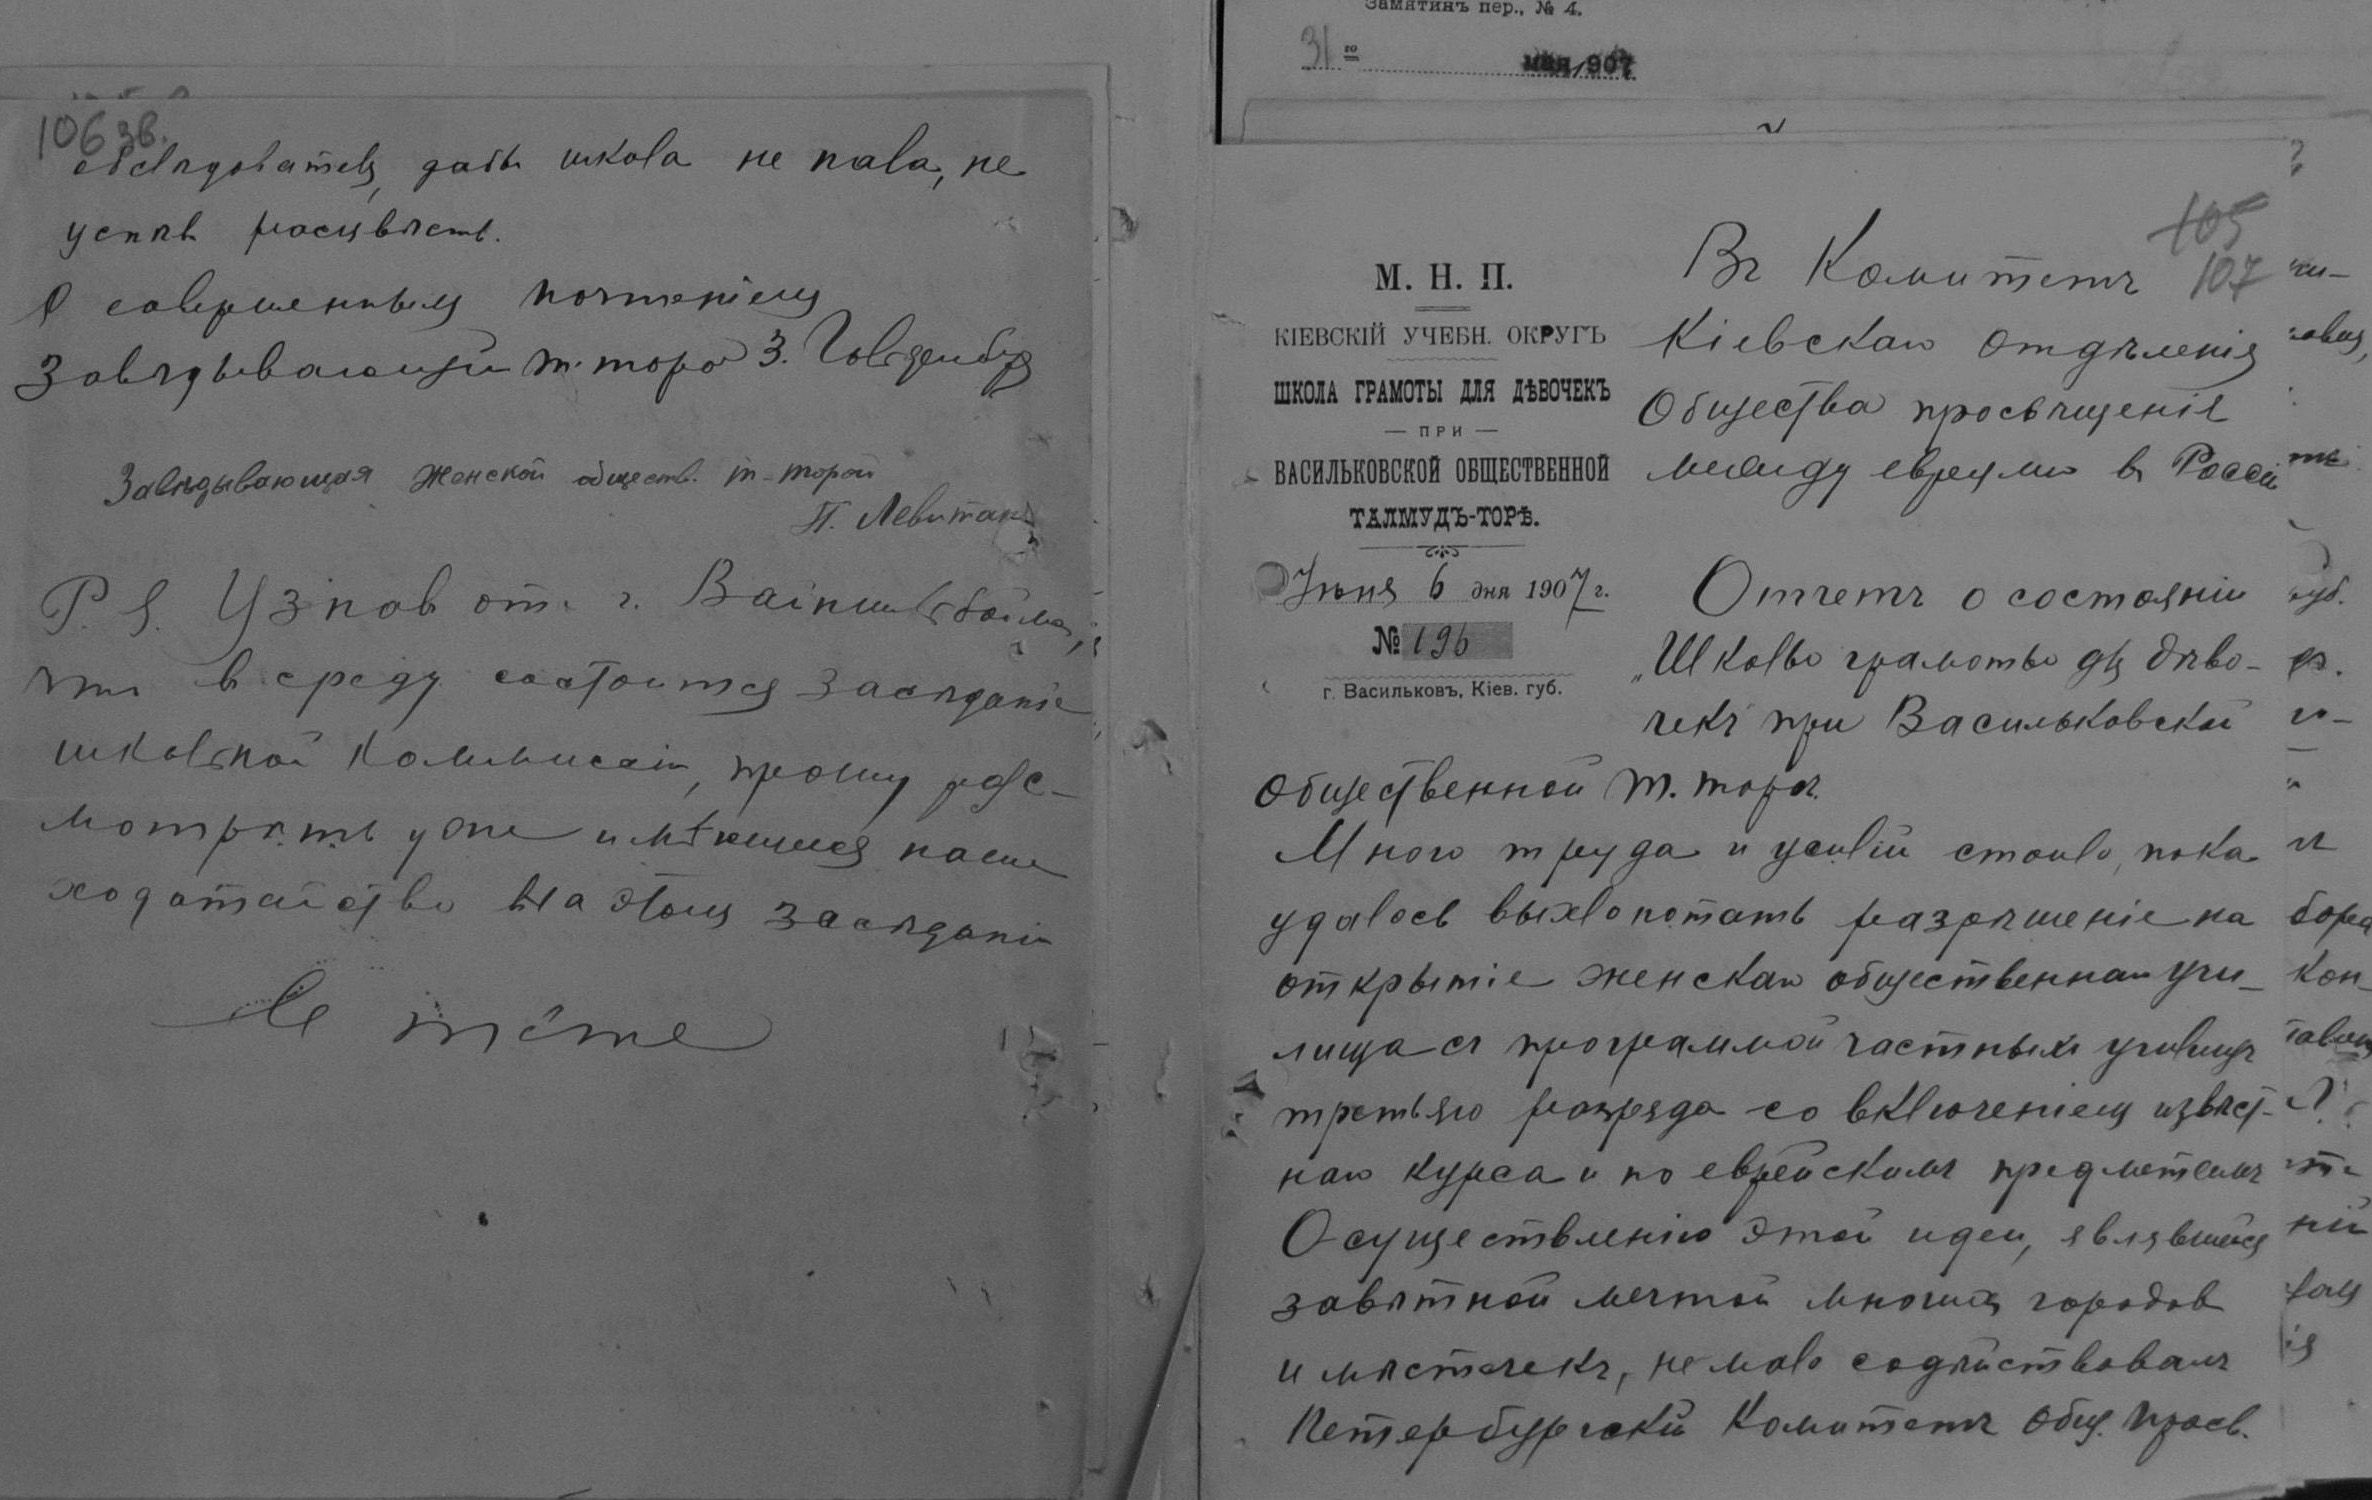 106 зв.
обслѣдователь, дабы школа не пала, не
успѣв расцвѣсть.
С совершенным почтеніем
Завѣдывающій т. тора З. Гольденберг
Завѣдывающая женской обществ. т-торой
П. Левитан
P. S. Узнав от г. Вайншельбойма,
что в среду состоится засѣданіе
школьной коммиссіи, прошу рас-
мотрѣть уже имѣющееся наше
ходатайство на этом засѣданіи
Le même
Замятинъ пер., № 4.
31 го мая 1907
105
107
Въ Комитетъ
Кіевскаго Отдѣленія
Общества просвѣщенія
между евреями в Россіи
М. Н. П.
КІЕВСКІЙ УЧЕБН. ОКРУГЪ
ШКОЛА ГРАМОТЫ ДЛЯ ДѢВОЧЕКЪ
— ПРИ —
ВАСИЛЬКОВСКОЙ ОБЩЕСТВЕННОЙ
ТАЛМУДЪ-ТОРѢ.
Іюня 6 дня 1907 г.
№ 196
г. Васильковъ, Кіев. губ.
Отчетъ о состояніи
„Школы грамоты для дѣво-
чекъ при Васильковской
общественной т. торѣ.
Много труда и усилій стоило, пока
удалось выхлопотать разрѣшеніе на
открытіе женскаго общественнаго учи-
лища съ программой частныхъ училищъ
третьяго разряда со включеніем извѣст-
наго курса и по еврейскимъ предметамъ
Осуществленію этой идеи, являвшейся
завѣтной мечтой многих городов
и мѣстечекъ, не мало содѣйствовалъ
Петербургскій Комитетъ Общ. Просв.